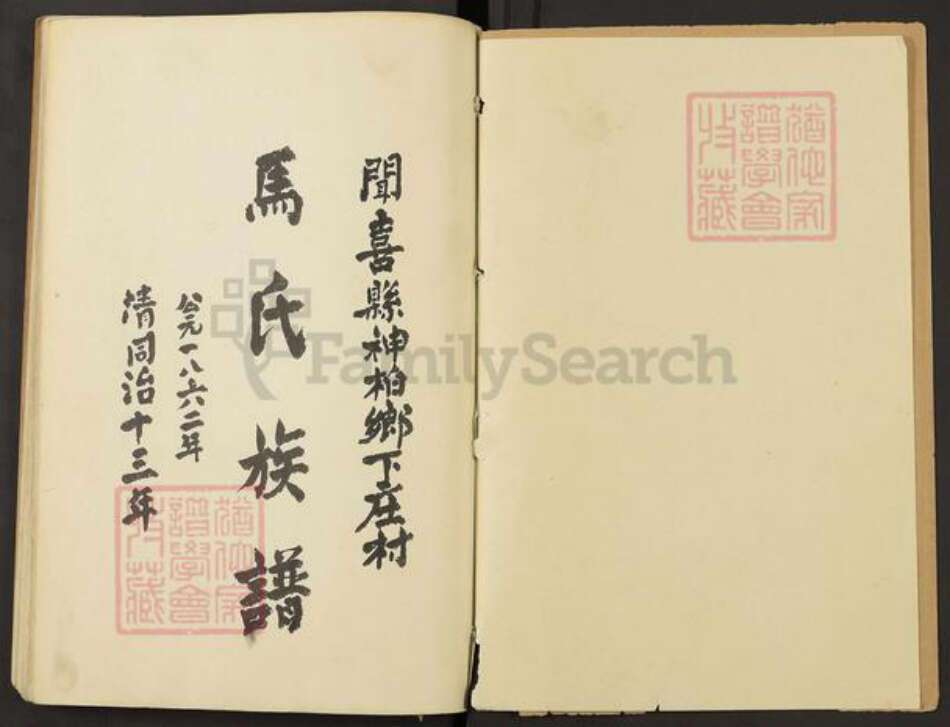 聞喜縣神柏鄉下庄村
馬氏族譜
公元一八六二年
清同治十三年
猶他家
譜學會
收藏
猶他家
譜學會
收藏
FamilySearch